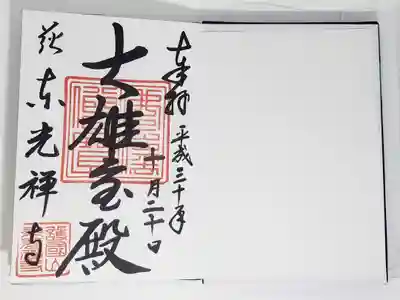 奉拝
平成三十年
十月二十日
大雄宝殿
萩
東光禅寺